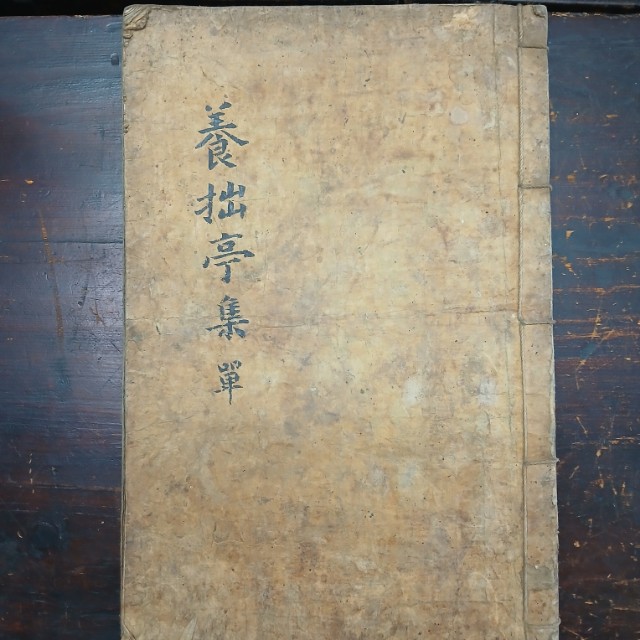 養拙亭集 單